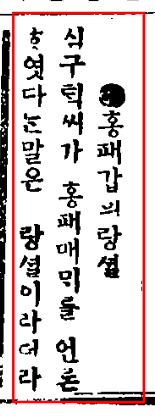 ●홍패갑의랑셜
심구틱씨가 홍패매믹를 언론
ᄒᆞ엿다는말은 랑셜이라더라